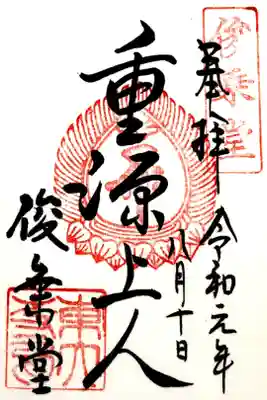 奉拝
俊乗堂
令和元年
八月十日
重源上人
俊乗堂